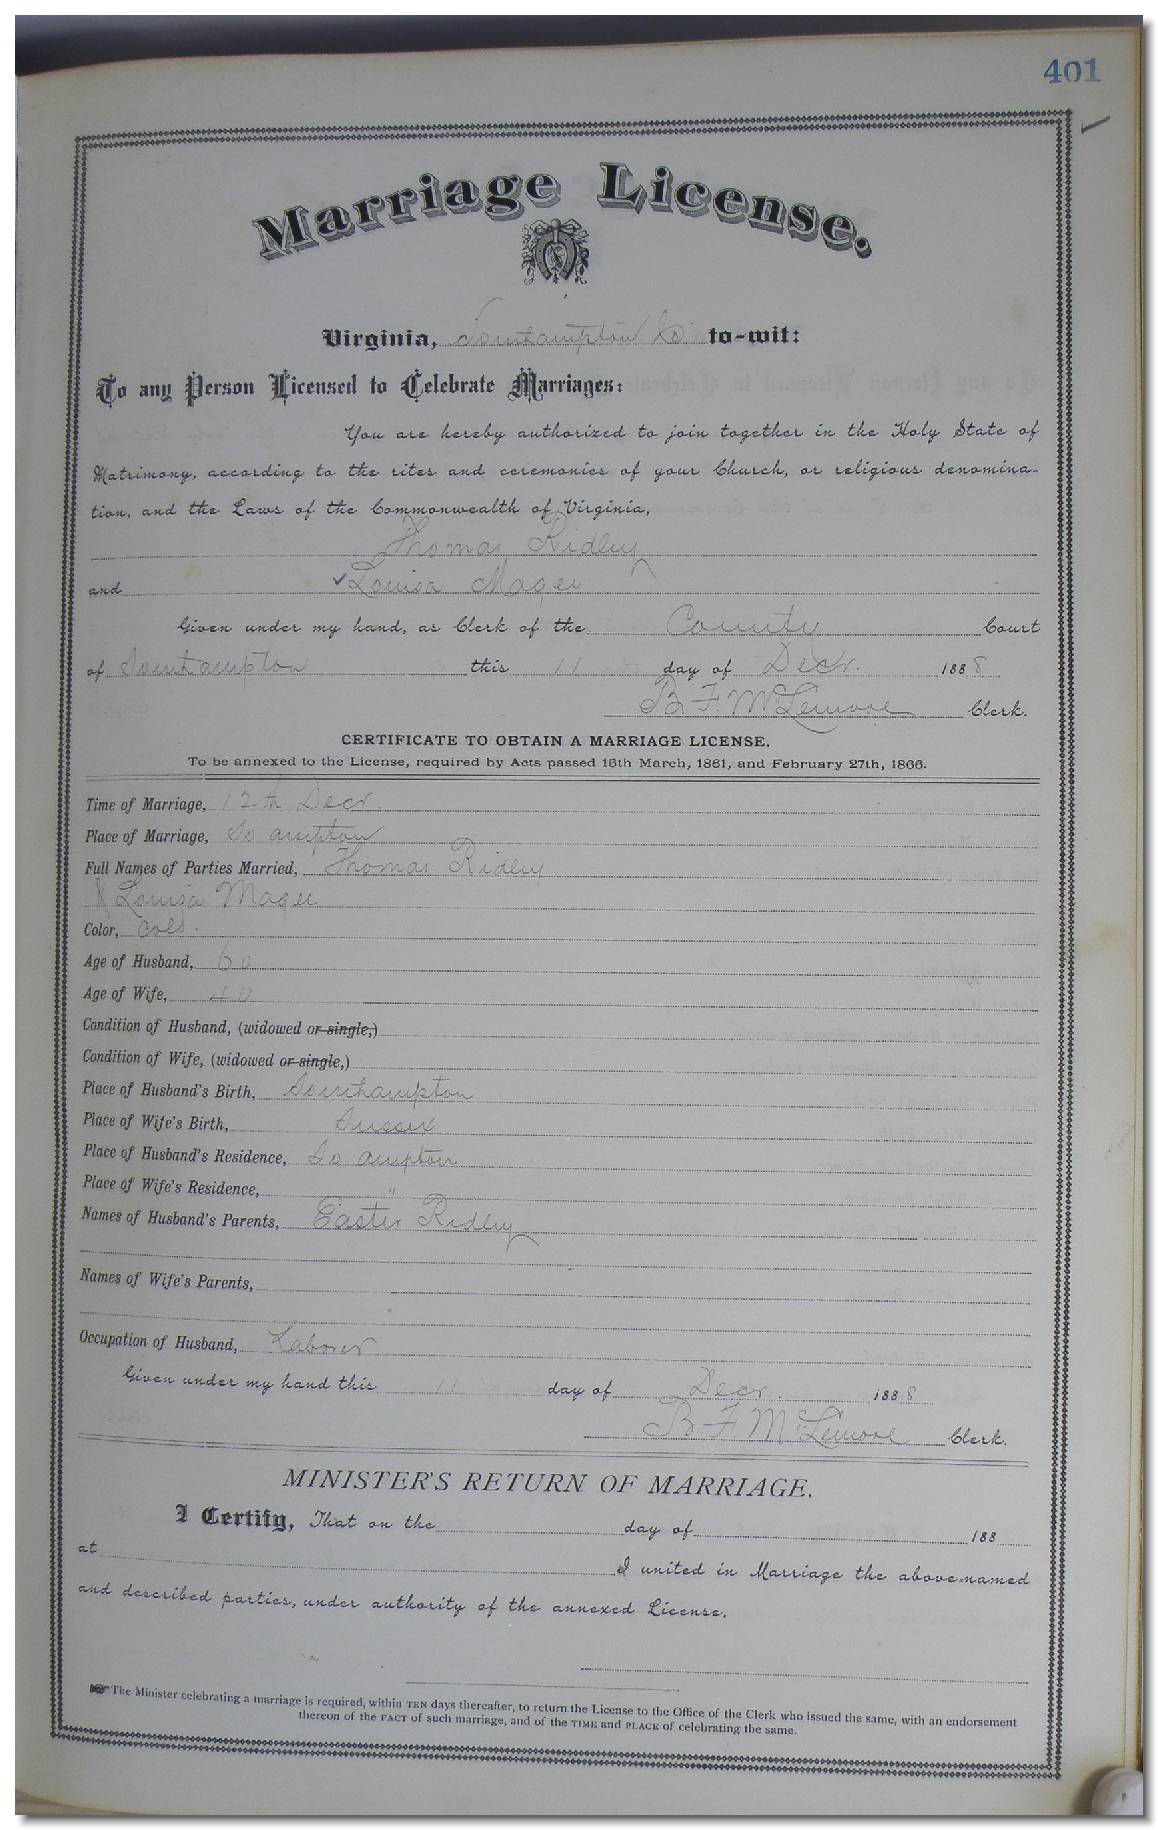 401
Marriage License.
Virginia, Southampton Co to-wit:
To any Person Licensed to Celebrate Marriages:
You are hereby authorized to join together in the Holy State of
Matrimony, according to the rites and ceremonies of your Church, or religious denomina-
tion, and the Laws of the Commonwealth of Virginia,
Thomas Ridley
and Louisa Magee
Given under my hand, as Clerk of the County Court
of Southampton this 11 day of Decr. 1888
B. F. McLemore Clerk.
CERTIFICATE TO OBTAIN A MARRIAGE LICENSE.
To be annexed to the License, required by Acts passed 16th March, 1861, and February 27th, 1866.
Time of Marriage, 12th Decr.
Place of Marriage, So ampton
Full Names of Parties Married, Thomas Ridley
& Louisa Magee
Color, Cold.
Age of Husband, 60
Age of Wife, 40
Condition of Husband, (widowed or single,)
Condition of Wife, (widowed or single,)
Place of Husband's Birth, Southampton
Place of Wife's Birth, Sussex
Place of Husband's Residence, So ampton
Place of Wife's Residence, "
Names of Husband's Parents, Easter Ridley
Names of Wife's Parents,
Occupation of Husband, Laborer
Given under my hand this 11 day of Decr. 1888
B. F. McLemore Clerk.
MINISTER'S RETURN OF MARRIAGE.
I Certify, That on the day of 188
at I united in Marriage the above-named
and described parties, under authority of the annexed License.
☛ The Minister celebrating a marriage is required, within TEN days thereafter, to return the License to the Office of the Clerk who issued the same, with an endorsement
thereon of the FACT of such marriage, and of the TIME and PLACE of celebrating the same.